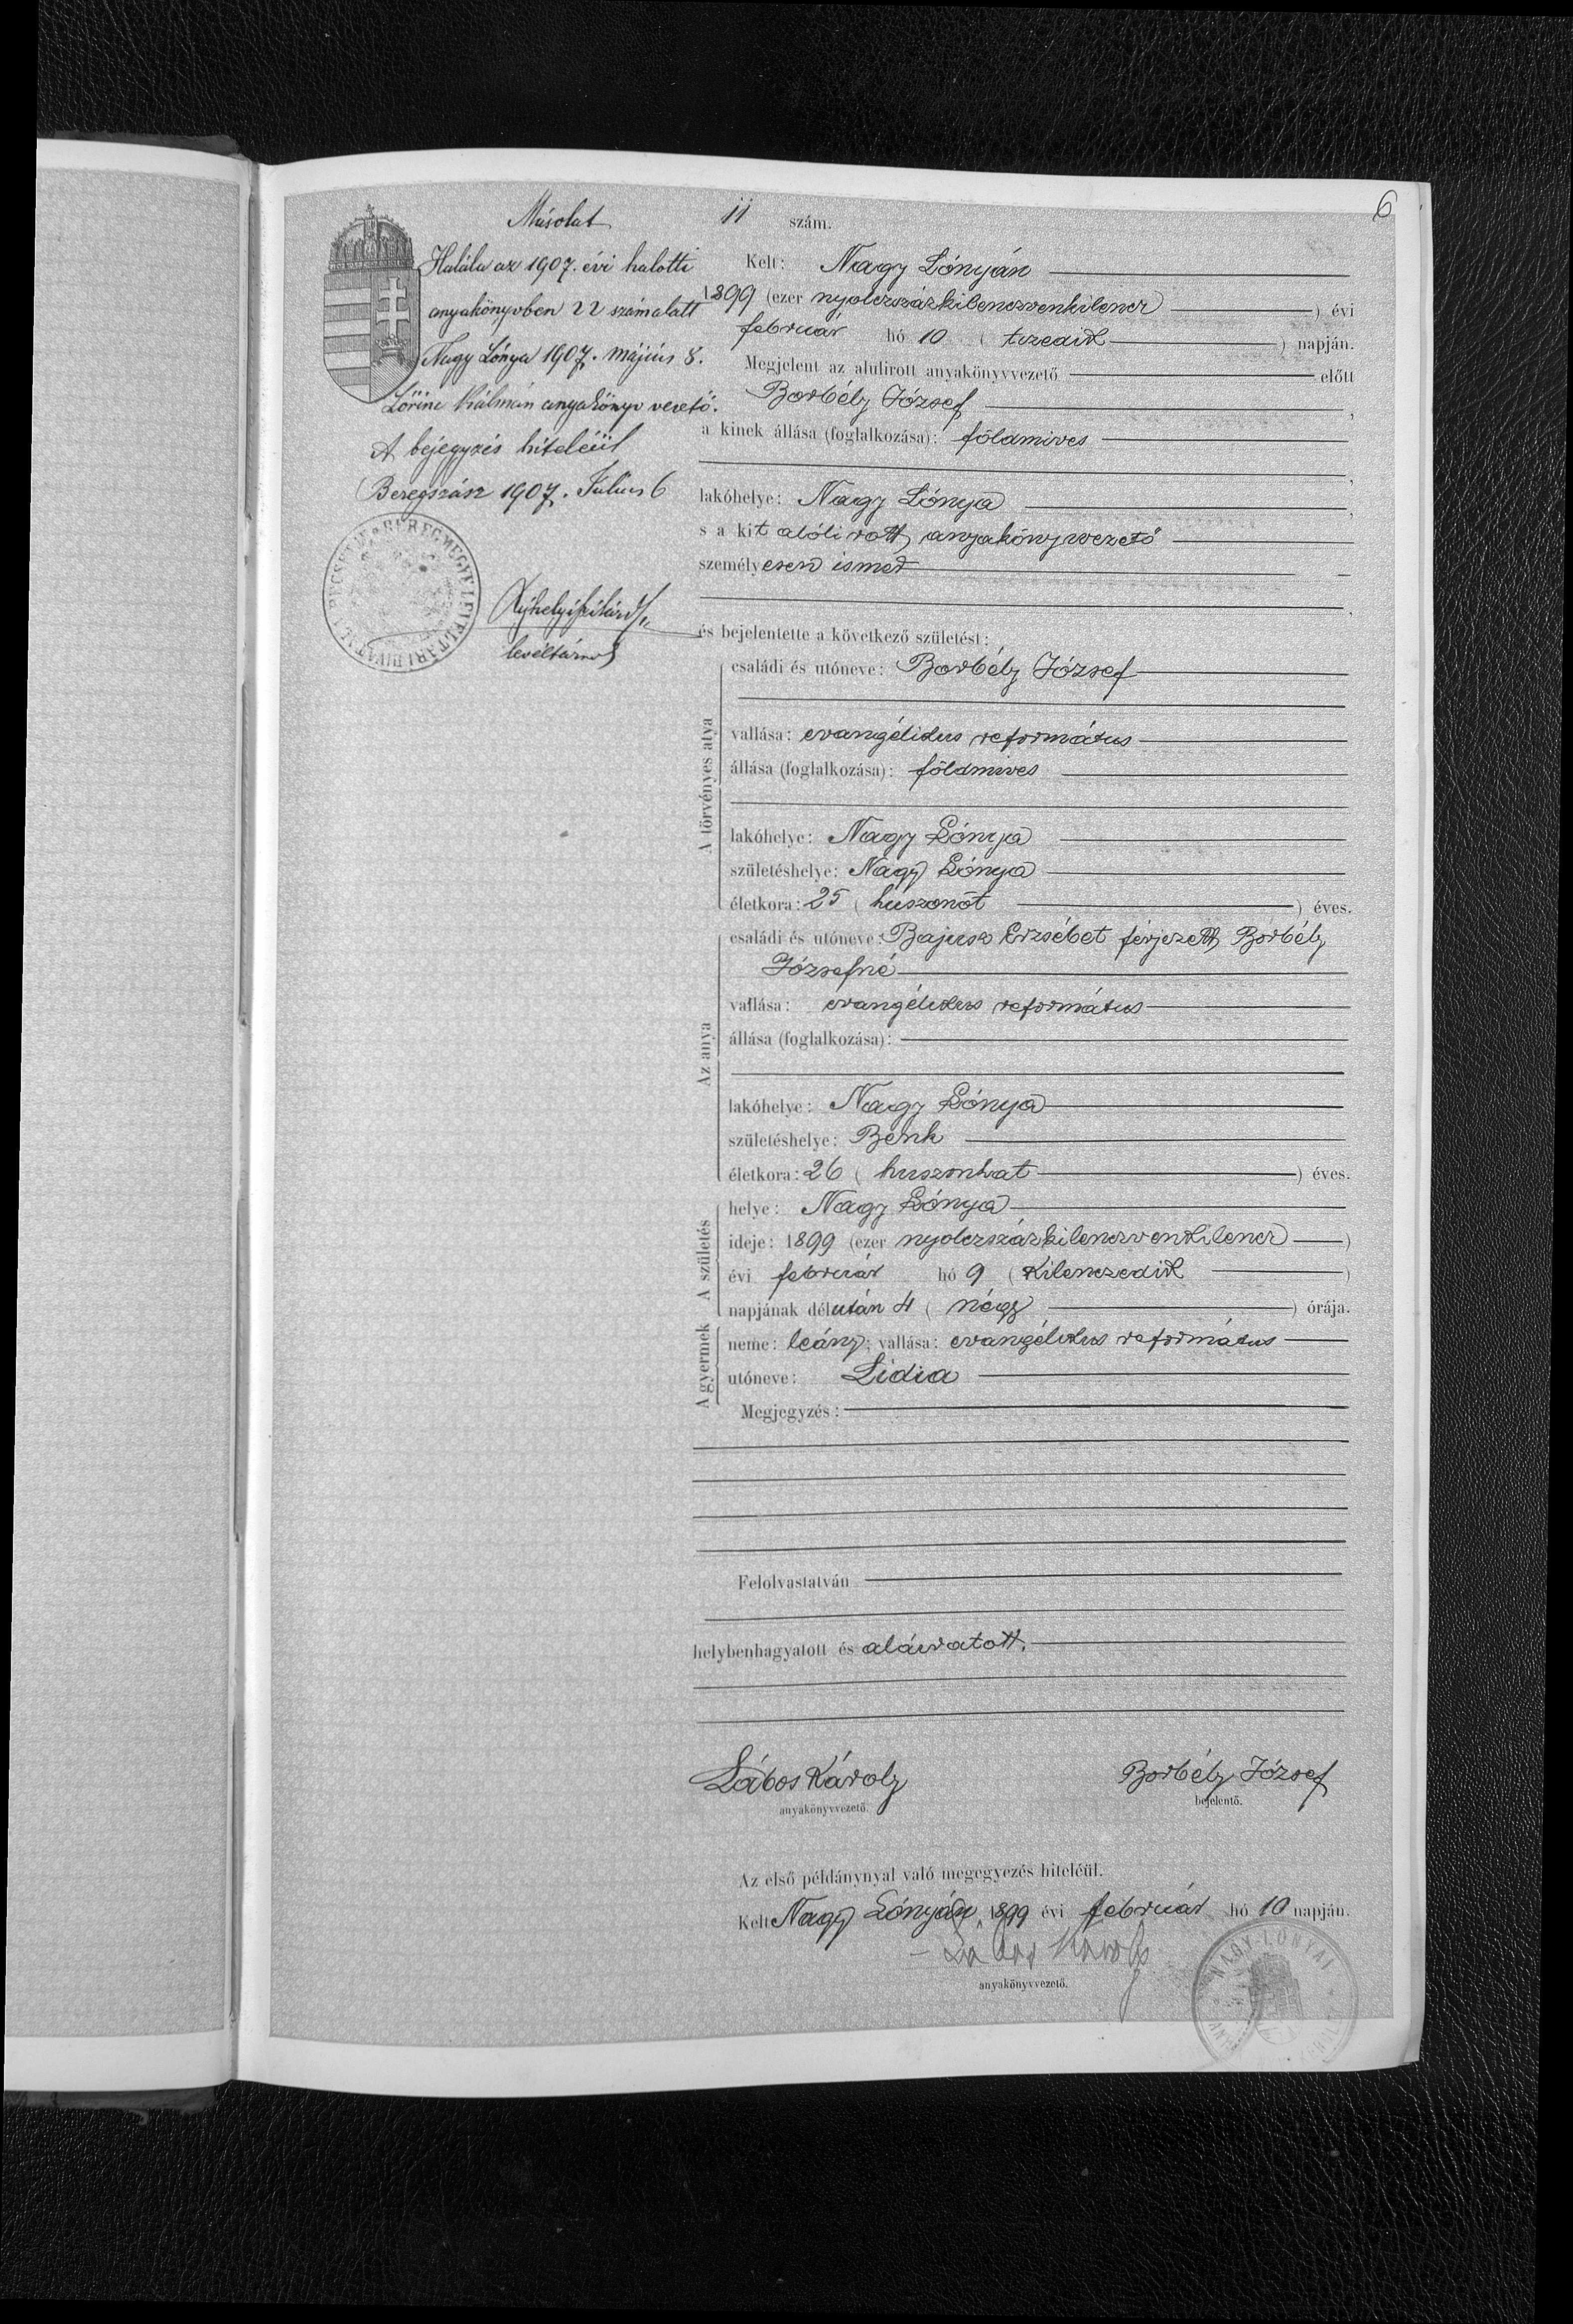 6
Másolat
Halála az 1907. évi halotti
anyakönyvben 22 szám alatt
Nagy Lónya 1907. május 8.
Lőrinc Kálmán anyakönyv vezető.
A bejegyzés hiteléül
Beregszász 1907. Július 6
BEREGMEGYE LEVÉLTÁRI HIVATAL PECSÉTJE
levéltárnok
11 szám.
Kelt: Nagy Lónyán
1899 (ezer nyolczszázkilenczvenkilencz) évi
február hó 10 (tizedik) napján.
Megjelent az alulirott anyakönyvvezető előtt
Borbély József,
a kinek állása (foglalkozása): földmives
,
lakóhelye: Nagy Lónya,
s a kit alólirott anyakönyvvezető
személyesen ismer
,
és bejelentette a következő születést:
A törvényes atya
családi és utóneve: Borbély József
vallása: evangélikus református
állása (foglalkozása): földmives
lakóhelye: Nagy Lónya
születéshelye: Nagy Lónya
életkora: 25 (huszonöt) éves.
Az anya
családi és utóneve: Bajusz Erzsébet férjezett Borbély
Józsefné
vallása: evangélikus református
állása (foglalkozása):
lakóhelye: Nagy Lónya
születéshelye: Benk
életkora: 26 (huszonhat) éves.
A születés
helye: Nagy Lónya
ideje: 1899 (ezer nyolczszázkilenczvenkilencz)
évi február hó 9 (kilenczedik)
napjának délután 4 (négy) órája.
A gyermek
neme: leány; vallása: evangélikus református
utóneve: Lidia
Megjegyzés:
Felolvastatván
helybenhagyatott és aláiratott.
Lábos Károly
anyakönyvvezető.
Borbély József
bejelentő.
Az első példánynyal való megegyezés hiteléül.
Kelt Nagy Lónyán, 1899 évi február hó 10 napján.
Lábos Károly
anyakönyvvezető.
NAGY LÓNYAI